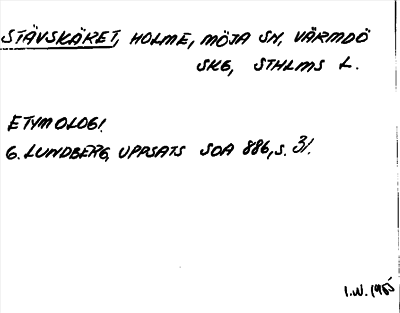 STÄVSKÄRET, HOLME, MÖJA SN, VÄRMDÖ
SKG, STHLMS L.
ETYMOLOGI
G. LUNDBERG, UPPSATS SOA 886, S. 31.
I.W. 1985